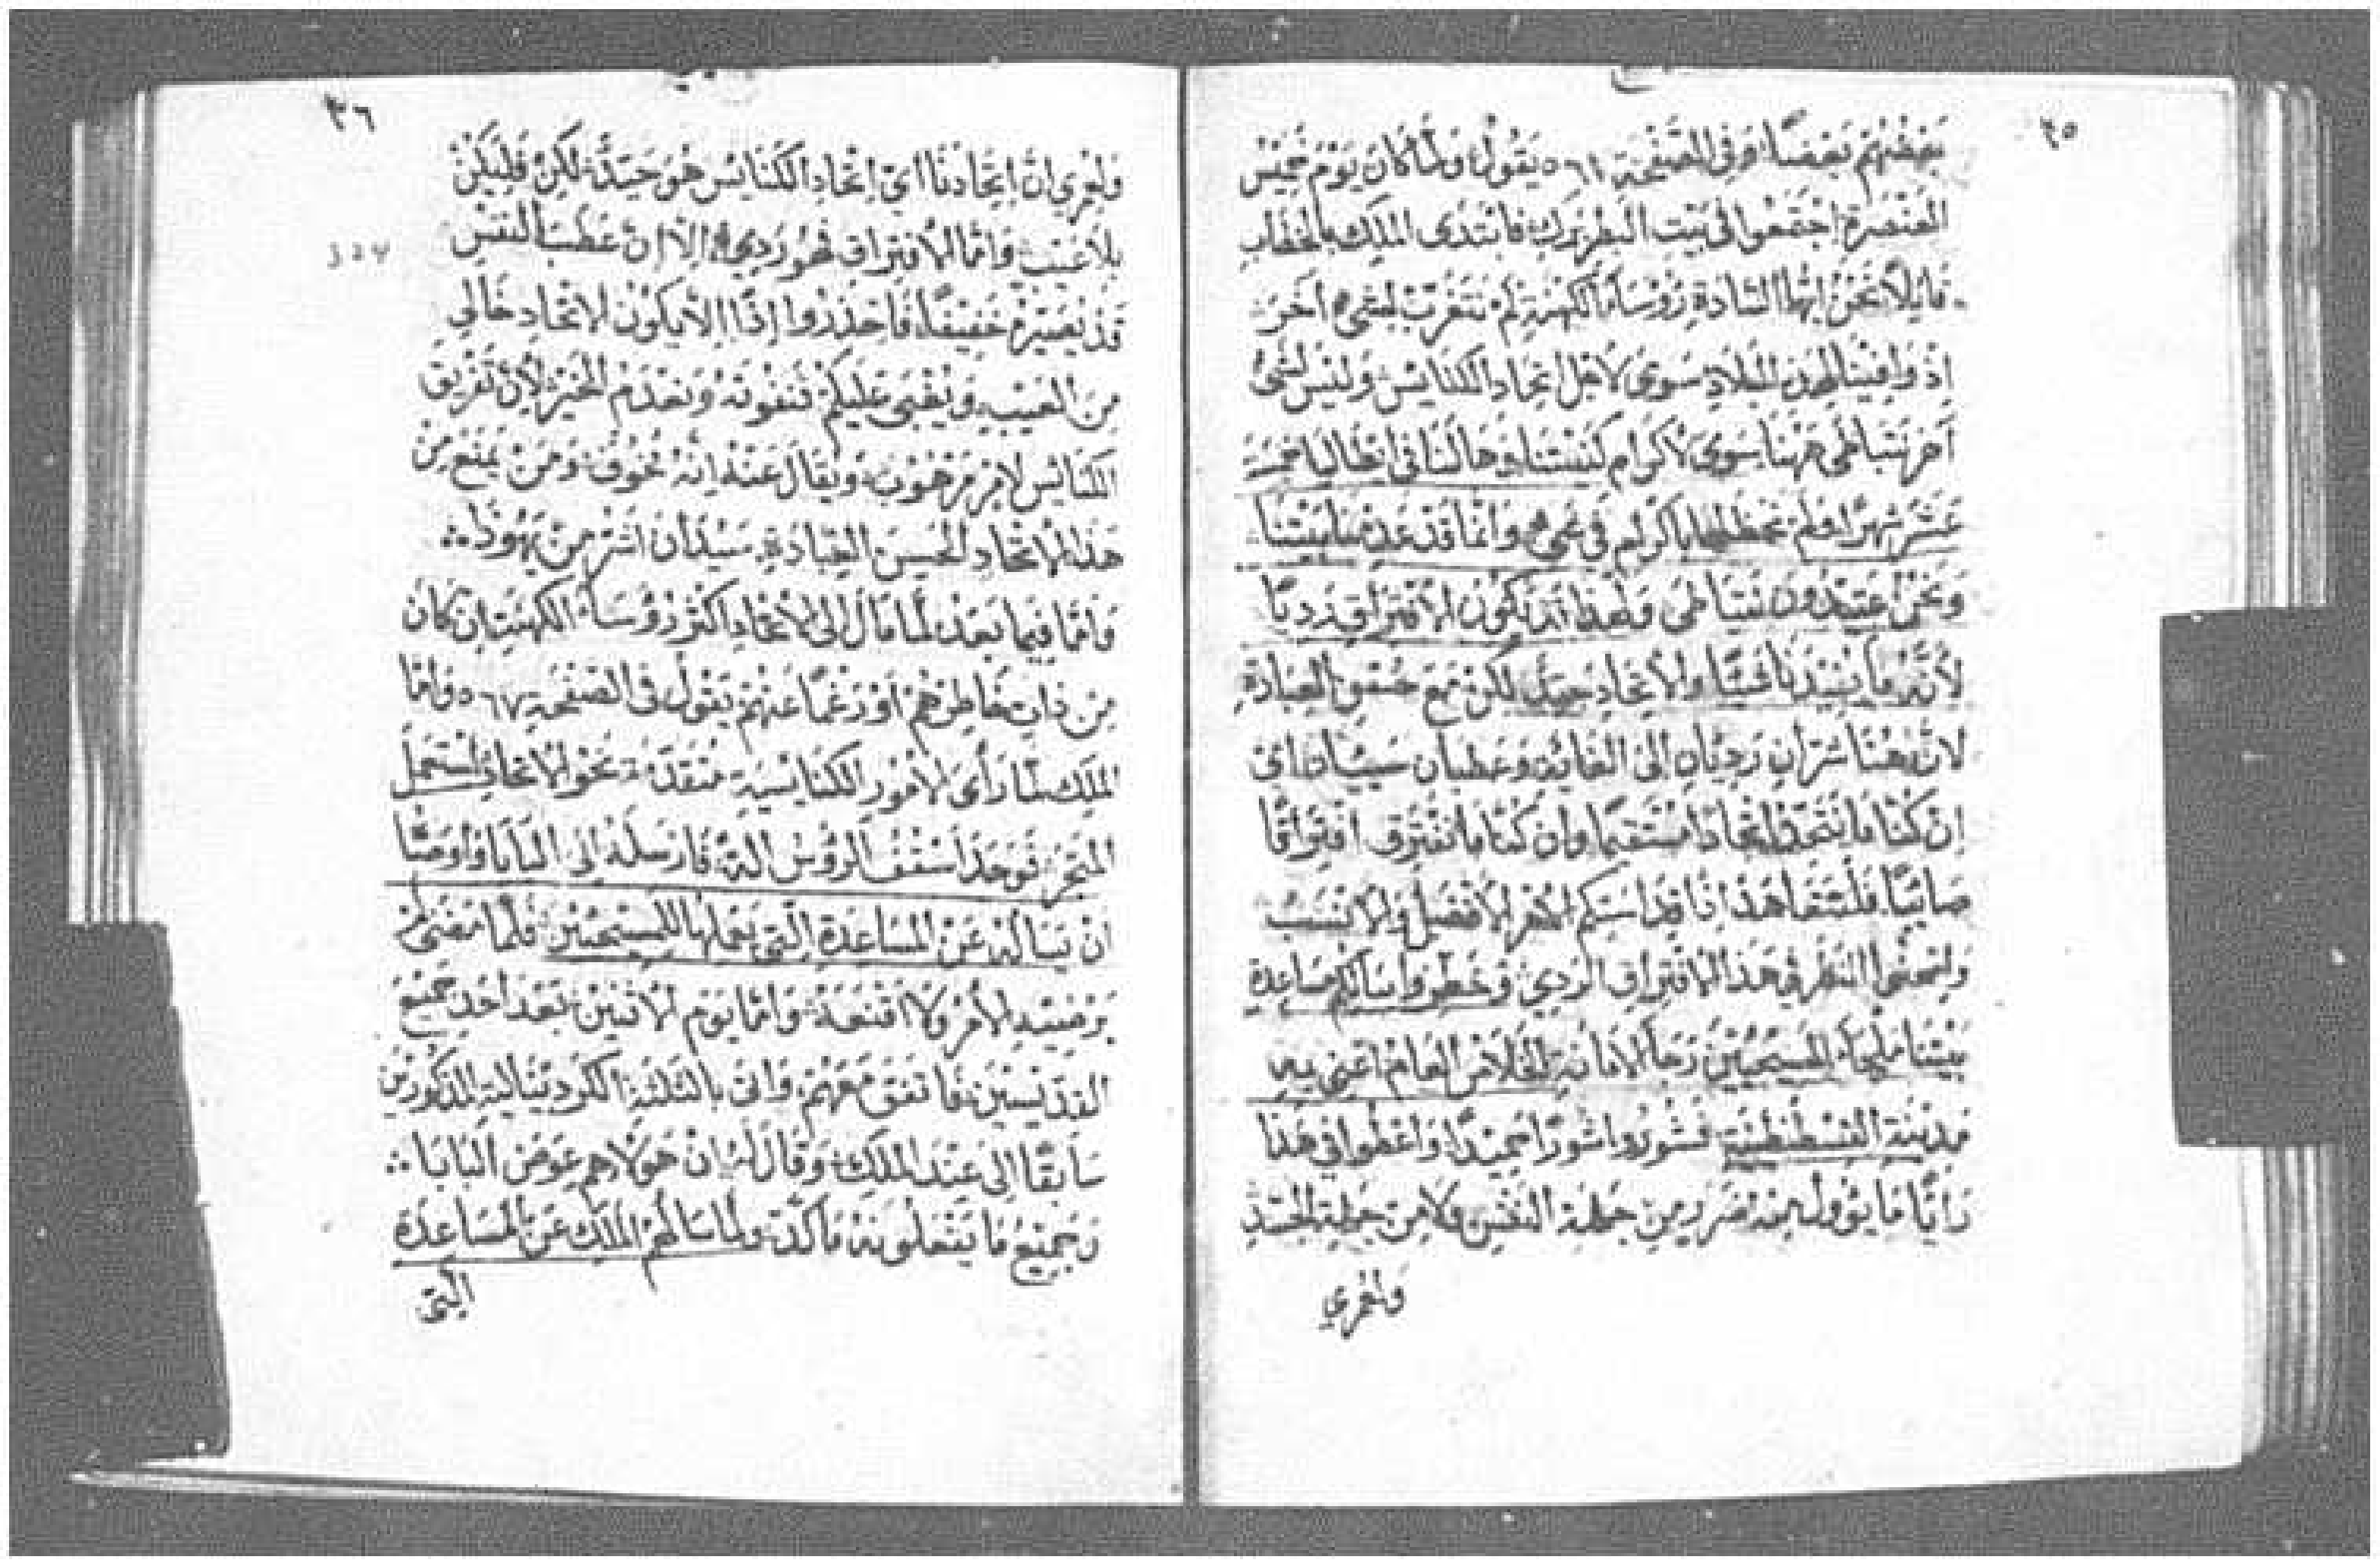 ٣٥
بَعضهُم بَعضًا وَفي الصَّفحَةِ ٥٦١ يَقُولُ وَلمَّا كانَ يَومُ خَميس
العَنصَرةِ اجتَمَعوا في بَيتِ البطريَركِ فابتَدَى الملِكُ بالخطابِ
قايلاً نَحنُ ايُّها السَّادةِ رُؤسَاءُ الكَهَنةِ لَم نَتغَرَّب لِشيءٍ اخَرَ
اِذ وَافينَا لِهذِه البلادِ سَوى لأجلِ اتِّحادِ الكنَايسِ وَليسَ لِشَيءٍ
آخرَ نَتباطَى هَهُنا سِوى لاكرَامِ كنيستنا وَها لَنا في ايطَاليَا خمسَةَ
عَشَرَ شهرًا وَلَم نحظَ لها باكرامٍ في شيءٍ وَانَّما قد عَدِمنا بَيتَنا
وَنَحنُ عَتيدُونَ نَتبَاطَى وَلهذا قَد يَكُونُ الافتراقِ رَديًّا
لأنَّهُ مَا يُفيدُنا شَيئًا والاتّحادُ جَيّدٌ لكن مَع حُسنِ العِبَادَةِ
لأنَّ هُنا شَرَّانِ رَديَّانِ الى الغَايَةِ وَعَطبَانِ سَيّيَانِ اي
اِن كُنَّا مَا نَتَّحدُ اتّحادًا مُستَقيمًا وان كُنَّا ما نَفترقُ افترَاقًا
صَائبًا فَلنَتَّقِ هَذا يا قداستكم الامر الافضَلَ والانسَبَ
وَلنُحسِن النَّظرَ في هذَا الافترَاقِ الرَّدِي وَخطرِه وَاسَالكُم مسَاعدة
بَيتنَا مَلجَاء المسيحيّينَ رَجَا الامَانَةِ الخلاصِ العامّ اعني به
مَدينَةَ القسطَنطنيَّةِ فَشُوروا شَورًا مَجيدًا وَاعطوا في هَذا
رَايًا مَا يَؤولُ مِنهُ ضَررٌ مِن جِهَةِ النَّفسِ وَلا مِن جِهةِ الجسَدِ
وَلَعَمري
٣٦
وَلعَمري انَّ اِتحادَنا اي اِتحادَ الكنَايسِ هُوَ جَيّدٌ لكن فَليَكُن
بلاَ عَيبٍ وَامَّا الافتراق فهُو رَدِيءٌ الا انَّ عَطَبَ النَّفسِ
قَد يَصيرُ خَفيفًا فَاحذَرُوا اِذًا الاَّ يكُونَ الاتحاد خَالي
مِن العَيبِ وَيَبقى عَلَيكُم فَنَفوتَهُ وَنَعدَمُ الخيرَ لأنَّ تَفريقَ
الكنَايس لامرٌ مَرهُوبٌ وَيقَالُ عَنهُ اِنَّهُ مُخوفٌ وَمَن يَمنَع مِن
هَذا الاتّحادِ الحسنِ العِبادَةِ سَيُدَانُ اشَرَّ مِن يَهُوذَا ∴
وَامَّا فيمَا بَعدُ لمَّا مَالَ الى الاتّحادِ اكثرُ رُؤسَاءِ الكَهنَةِ اِن كَانَ
مِن ذاتِ خَاطرهِم اَو رَغمًا عَنهُم يَقُولُ في الصّفحَةِ ٥٦٧ وَامّا
الملكُ لمَّا رَأى الامُورَ الكنَايسيَةِ مُتقَدِّمَةً نَحوَ الاتحَادِ استَعمَلَ
المَتجَر فَوَجدَ اسقُفَّ الرُّوسِ الةً فَارسَلَهُ اِلى البَابَا وَاوصَاهُ
انْ يَسَالَهُ عَن المسَاعَدَةِ الّتي يَعمَلُها للمسيحيّين فَلمَّا مَضَى لَم
يَرضَ بِهِ الأمرُ وَلاَ اقنَعَهُ وَامَّا يَومَ الاثنَينِ بَعدَ احَدِ جَميع
القدّيسينَ فَاتفَقَ مَعَهُم وَاتى بالثَّلثَةِ الكردينَاليّةِ المذكُورينَ
سَابقًا الى عِندِ الملكِ وَقَالَ لَهُ انَّ هَؤلاءِ هُم عِوَضُ البَابَا ∴
وَجَميعُ مَا يَفعَلُونَهُ فَأكّدهُ وَلما سَالَهُم الملكُ عَن المسَاعَدَة
الّتي